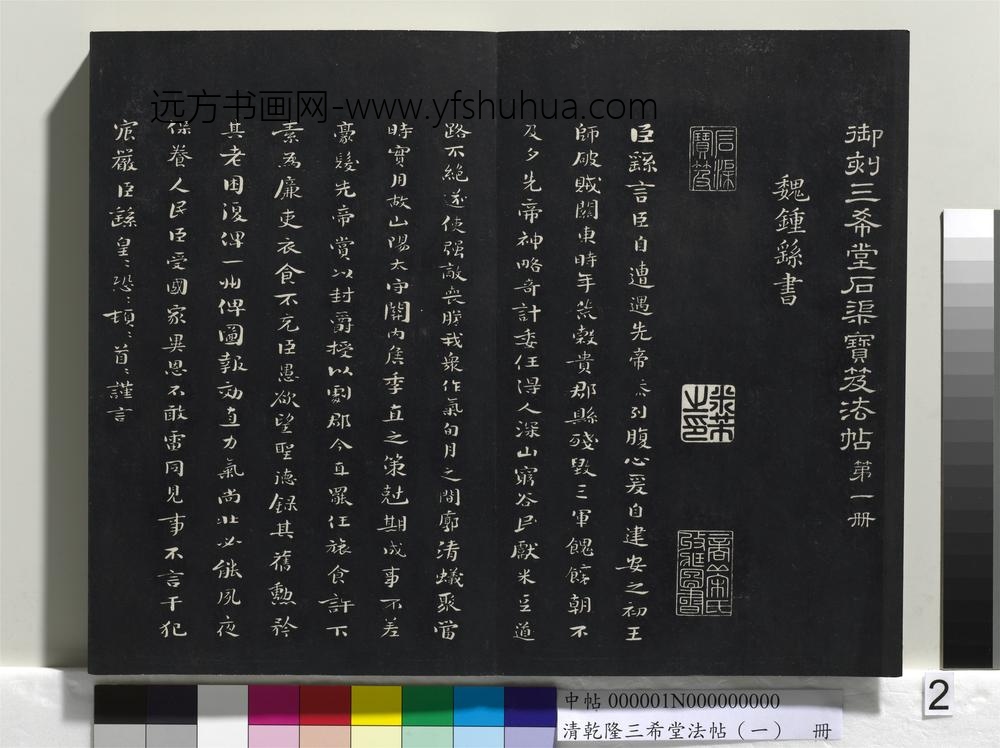 御刻三希堂石渠寶笈法帖第一冊
魏鍾繇書
石渠
寶笈
米芾
之印
臣繇言臣自遭遇先帝忝列腹心爰自建安之初王
師破賊關東時年荒穀貴郡縣殘毀三軍餽饟朝不
及夕先帝神略奇計委任得人深山窮谷民獻米豆道
路不絕遂使强敵喪膽我衆作氣旬月之間廓清蟻聚當
時實用故山陽太守關內侯季直之策尅期成事不差
豪髮先帝賞以封爵授以劇郡今直罷任旅食許下
素為廉吏衣食不充臣愚欲望聖德錄其舊勳矜
其老困復俾一州俾圖報効直力氣尚壯必能夙夜
保養人民臣受國家異恩不敢雷同見事不言干犯
宸嚴臣繇皇〻恐〻頓〻首〻謹言
远方书画网-www.yfshuhua.com
2
中帖 000001N000000000
清乾隆三希堂法帖（一） 冊